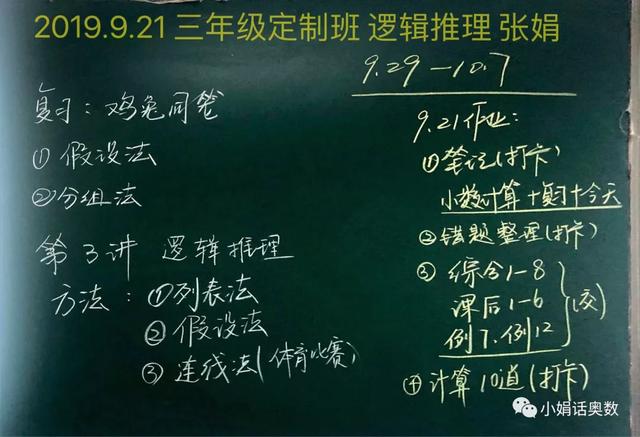 2019.9.21 三年级定制班 逻辑推理 张娟
复习：鸡兔同笼
①假设法
②分组法
第3讲 逻辑推理
方法：①列表法
②假设法
③连线法(体育比赛)
9.29—10.7
9.21作业：
①笔记(打卡)
小数计算+复习+今天
②错题整理(打卡)
③综合1-8
课后1-6
例7、例12
(交)
④计算10道(打卡)
小娟话奥数